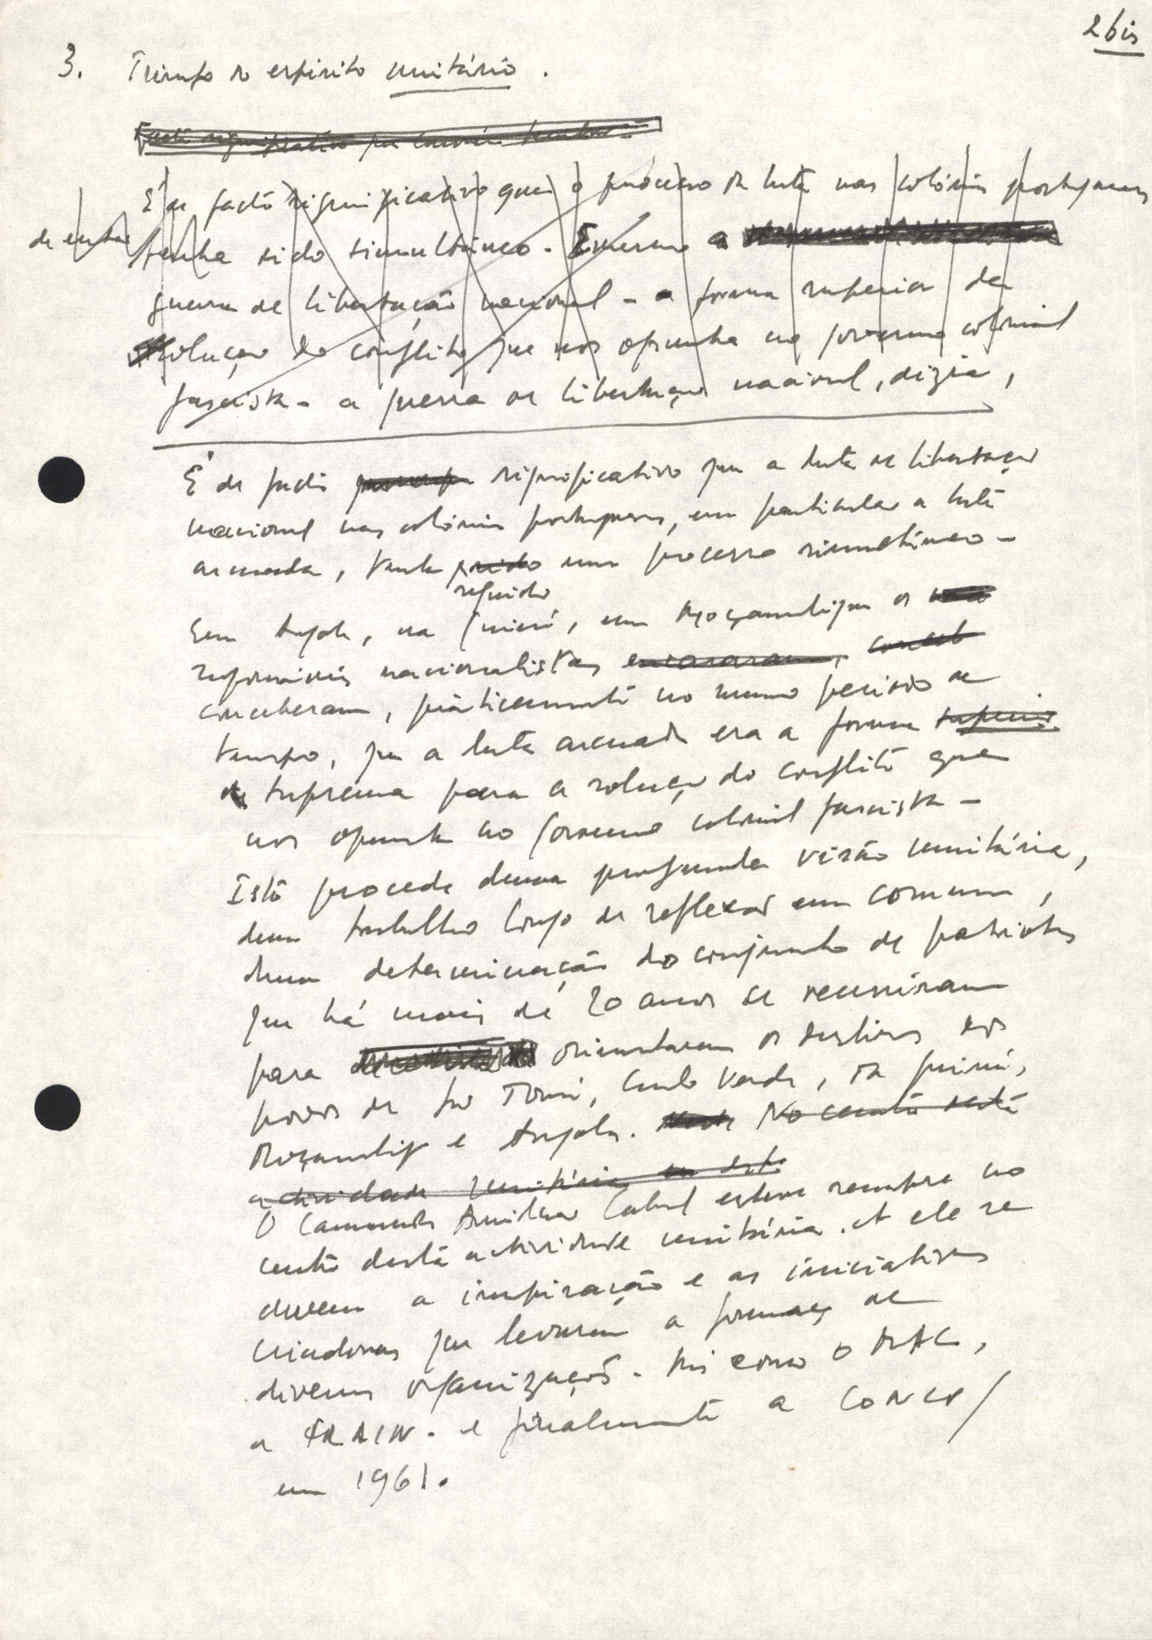 2 bis
3. Triunfo do espírito unitário.
É de facto significativo que o processo da luta nas colónias portuguesas
tenha sido simultâneo. a
guerra de libertação nacional - a forma superior de
solução do conflito que nos opunha ao governo colonial
fascista - a guerra de libertação nacional, dizia,
É de facto significativo que a luta de libertação
nacional nas colónias portuguesas, em particular a luta
armada, tenha sido um processo simultâneo -
seguido
Em Angola, na Guiné, em Moçambique os
nacionalistas encararam,
conceberam, praticamente no mesmo período de
tempo, que a luta armada era a forma
suprema para a solução do conflito que
nos opunha ao governo colonial fascista -
Isto procede duma profunda visão unitária,
dum trabalho longo de reflexão em comum,
duma determinação do conjunto de patriotas
que há mais de 20 anos se reuniram
para orientarem os destinos dos
povos de São Tomé, Cabo Verde, da Guiné,
Moçambique e Angola. No centro desta
actividade unitária
O Camarada Amilcar Cabral esteve sempre no
centro desta actividade unitária. A ele se
devem a inspiração e as iniciativas
criadoras que levaram a formação de
diversas organizações. Tais como o MAC,
a FRAIN. e finalmente a CONCP
em 1961.